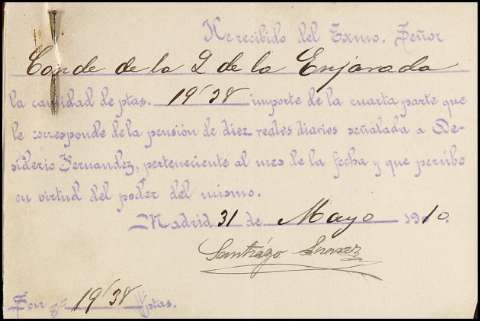 He recibido del Excmo. Señor
Conde de la Q de la Enjarada
la cantidad de ptas. 19'38 importe de la cuarta parte que
le corresponde de la pensión de diez reales diarios señalada a De-
siderio Fernandez, perteneciente al mes de la fecha y que percibo
en virtud del poder del mismo.
Madrid 31 de Mayo 1910.
Santiago
Son ptas. 19'38 ptas.